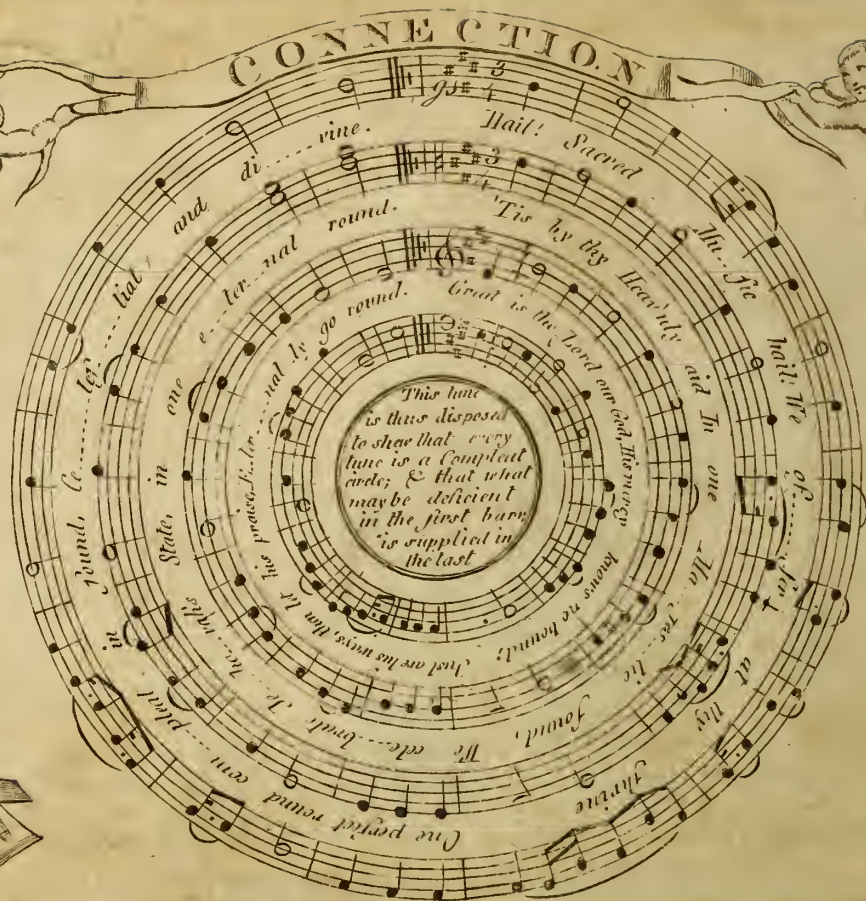 CONNECTION
Hail! Sacred Mu...ſic hail! We of......fer at thy ſhrine One perfect round com....pleat in ſound, Ce........leſ......tial, and di.....vine.
'Tis by thy Heav'nly aid In one Ma...jes...tic ſound, We cele...brate Je...ho..vah's State, in one e...ter...nal round.
Great is the Lord our God, His mercy knows no bound; Just are his ways, than let his praise, Eter......nal ly go round.
This tune
is thus disposed
to shew that every
tune is a Compleat
circle; & that what
may be deficient
in the first barr,
is supplied in
the last